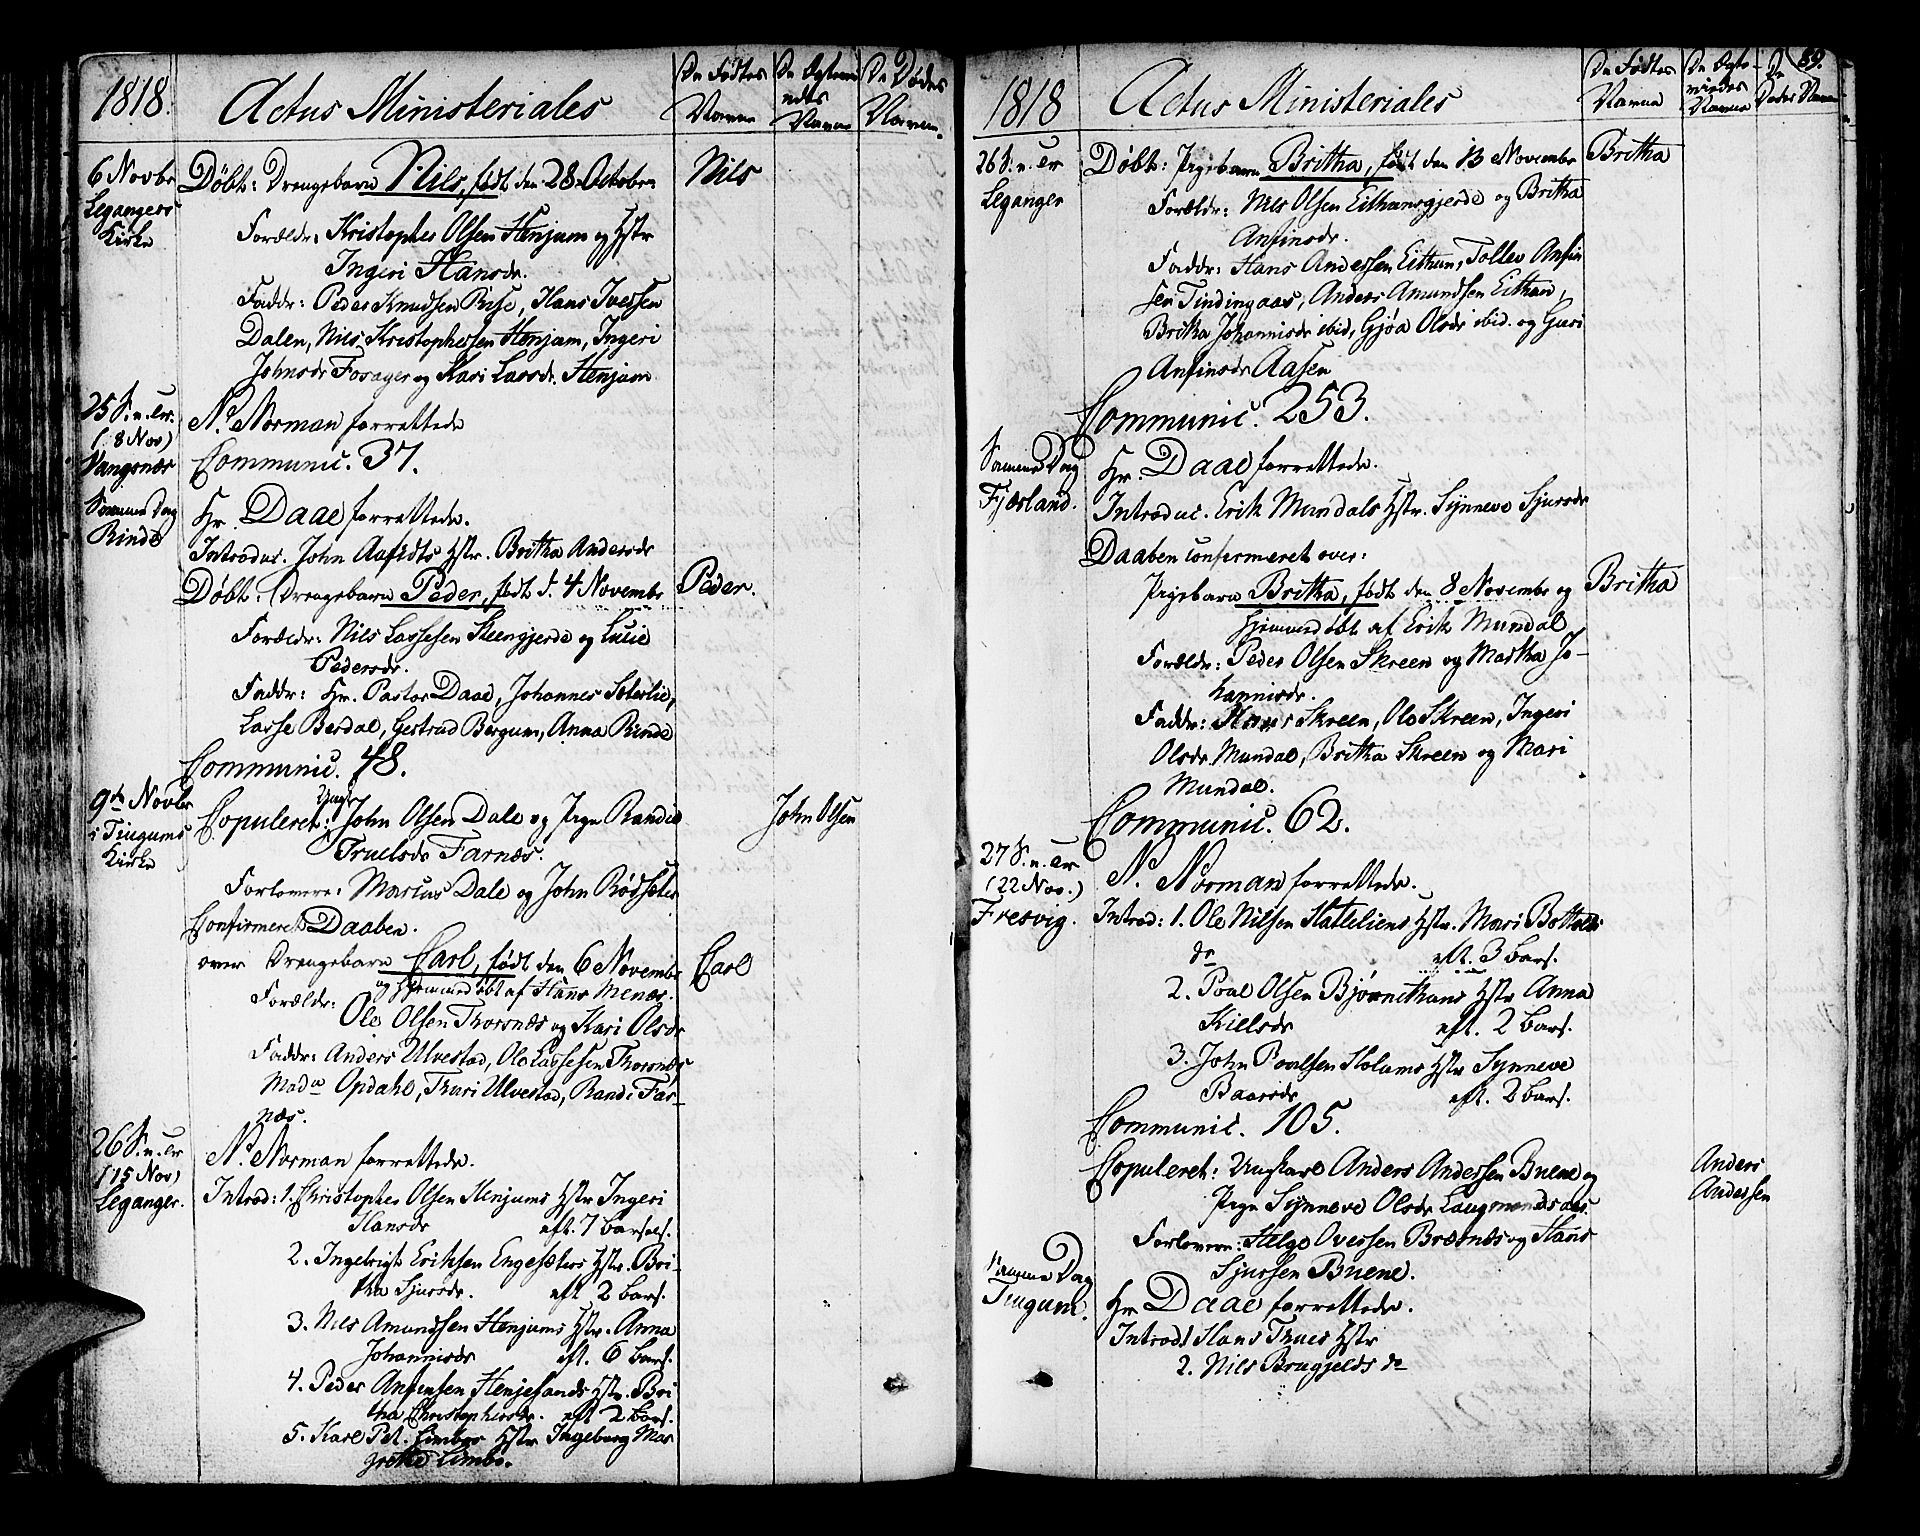 1818. Actus Ministeriales
De Fødtes Navne
De Egteviedes Navne
De Dødes Navne.
6 Novbr Legangers Kirke
Døbt: Drengebarn Nils, født den 28 October Nils
Forældr: Kristopher Olsen Henjum og Hstr
Ingeri Hansdr.
Faddr: Peder Knudsen Rise, Hans Ivessen
Dalen, Nils Kristophersen Henjum, Ingeri
Johnsdr Fosager og Kari Lassdr. Henjum.
25 S. n. Tr. (8 Nov) Vangsnæs
N. Norman forrettede
Communic. 37.
Samme Dag Rinde
Hr. Daae forrettede.
Introduc. John Aafedts Hstr. Britha Andersdr
Døbt: Drengebarn Peder, født d. 4 Novembr Peder.
Forældr: Nils Lassesen Steengjerde og Lucie
Pedersdr.
Faddr: Hr. Pastor Daae, Johannes Sæterlie,
Lasse Berdal, Gertrud Bergum, Anna Rinde
Communic. 48.
9de Novbr i Tiugums Kirke
Copuleret: Ungk. John Olsen Dale og Pige Randie John Olsen
Truelsdr Farnæs.
Forlovere: Marcus Dale og John Rødseter
Confirmeret Daaben.
over Drengebarn Carl, født den 6 Novembr Carl
og hjemmedøbt af Hans Menæs.
Forældr: Ole Olsen Thorsnæs og Kari Olsdr
Faddr: Anders Ulvestad, Ole Lassesen Thorsnæs
Made Opdahl, Thuri Ulvestad, Randi Far-
næs.
26 S. n. Tr (15 Nov) Leganger.
N. Norman forrettede.
Introd: 1. Christopher Olsen Henjums Hstr Ingeri
Hansdr eft. 7 barsels.
2. Ingebrigt Eriksen Engesæters Hstr. Bri-
tha Sjursdr. eft 2 bars.
3. Nils Amundsen Henjums Hstr. Anna
Johannisdr eft. 6 bars.
4. Peder Anfinsen Henjesands Hstr. Bri
tha Christophersdr. eft 2 bars.
5. Karl Pet. Limbos Hstr Ingeborg Mar
grethe Limbo.
1818 Actus Ministeriales
De Fødtes Navne
De Egteviedes Navne
De Dødes Navne
89.
26 S. n. Tr Leganger
Døbt: Pigebarn Britha, født den 13 Novembr Britha
Forældr: Nils Olsen Eithunsgjerde og Britha
Anfinsdr.
Faddr: Hans Andersen Eithun, Tollev Anfin
sen Tindingaas, Anders Amundsen Eithun,
Britha Johannisdr ibid, Gjøa Olsdr ibid. og Guri
Anfinsdr Aasen
Communic. 253.
Samme Dag Fjærland.
Hr. Daae forrettede.
Introduc. Erik Mundals Hstr. Synneve Sjursdr
Daaben confirmeret over:
Pigebarn Britha, født den 8 Novembr og Britha
hjemmedøbt af Erik Mundal
Forældr: Peder Olsen Skreen og Martha Jo-
hannisdr.
Faddr: Hans Skreen, Ole Skreen, Ingeri
Olsdr. Mundal, Britha Skreen og Mari
Mundal.
Communic. 62.
27 S. n. Tr (22 Nov.) Fresvig.
N. Norman forrettede.
Introd: 1. Ole Nilsen Hatleliens Hstr. Mari Bottolfs
dr eft. 3 bars.
2. Poul Olsen Bjørnethuns Hstr Anna
Kielsdr eft. 2 bars.
3. John Poulsen Holums Hstr Synneve
Baarsdr eft. 2 bars.
Communic. 105.
Copuleret: Ungkarl Anders Andersen Buene og Anders Andersen
Pige Synneve Olsdr Laugmandsaas.
Forlovere: Helge Iversen Bræsnæs og Hans
Sjursen Buene.
Samme Dag Tiugum.
Hr Daae forrettede.
Introd 1 Hans Thues Hstr
2. Nils Brugjelds do